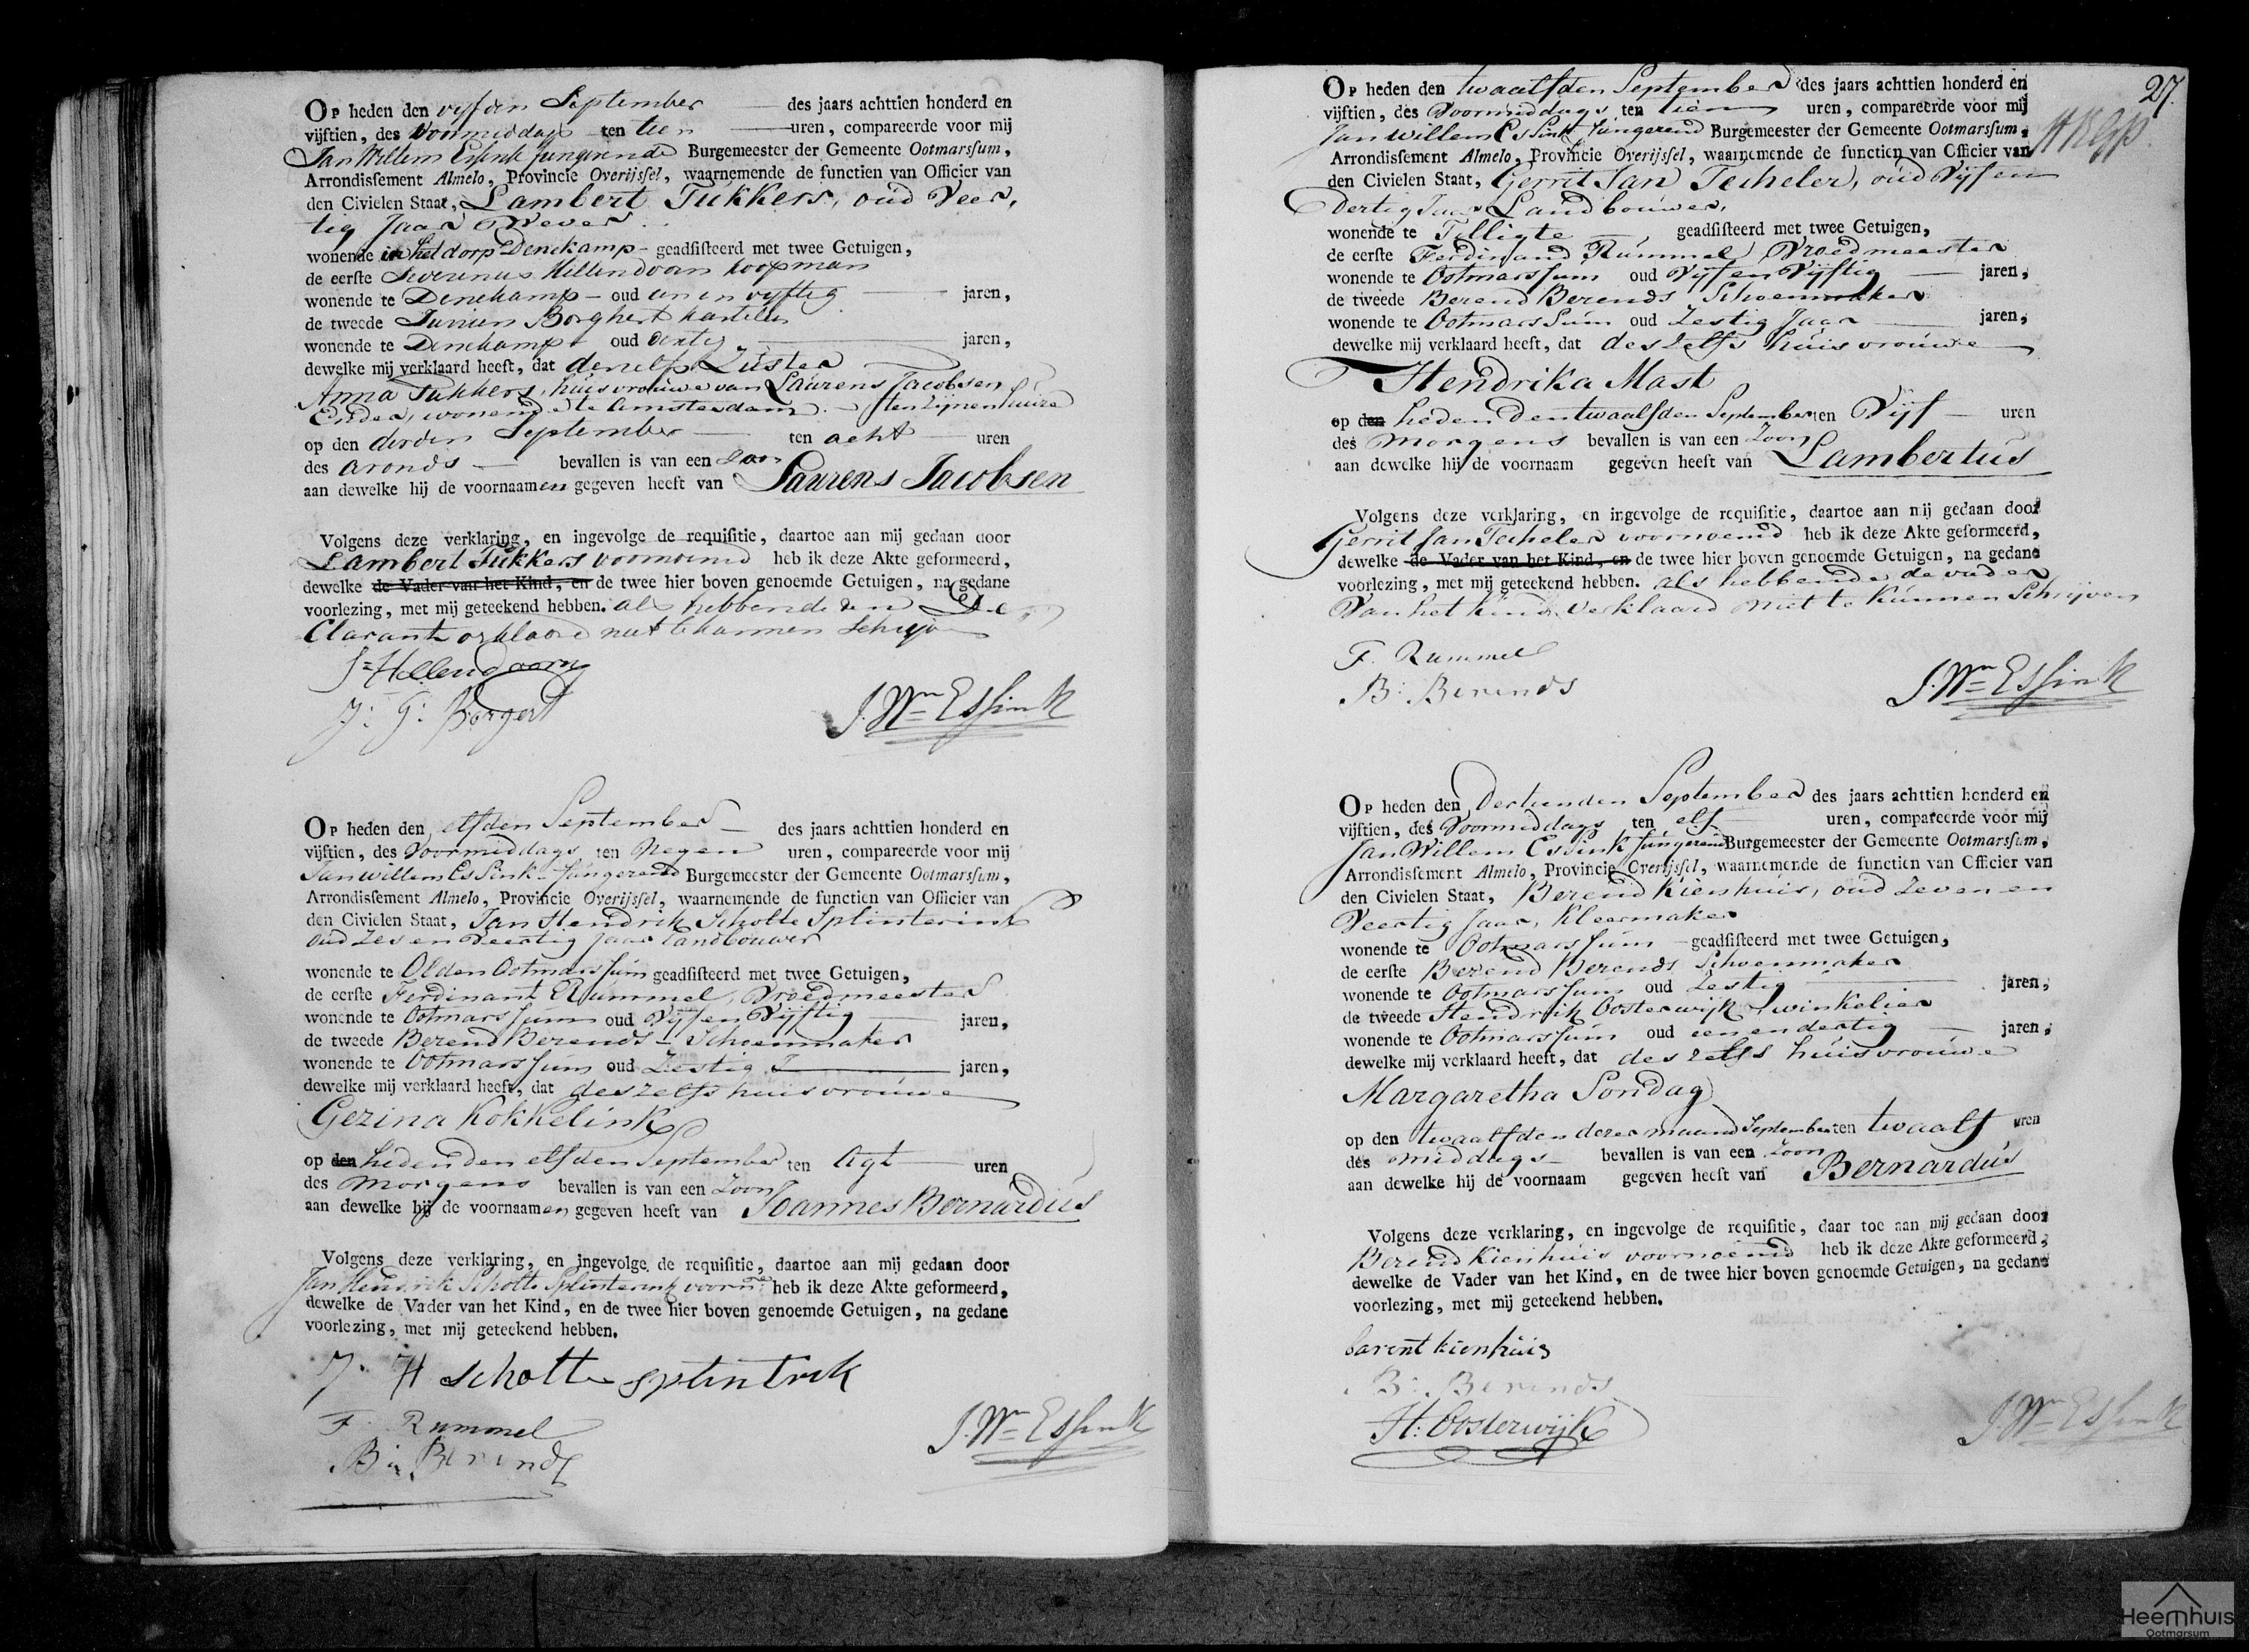 Op heden den vijfden September des jaars achttien honderd en
vijftien, des voormiddags ten tien uren, compareerde voor mij
Jan Willem Essink fungerende Burgemeester der Gemeente Ootmarsſum,
Arrondisſement Almelo, Provincie Overijsſel, waarnemende de functien van Officier van
den Civielen Staat, Lambert Tukkers, oud Veer,
tig Jaar Wever
wonende in het dorp Denekamp geadſiſteerd met twee Getuigen,
de eerſte Severinus Hellendoorn koopman
wonende te Denekamp oud een en vyftig jaren,
de tweede Borghert
wonende te Denekamp oud dertig jaren,
dewelke mij verklaard heeft, dat denzelfs Zuster
Anna Tukkers, huisvrouwe van Laurens Jacobsen
wonende te Amsterdam ten Zijnen huize
op den derden September ten acht uren
des avonds bevallen is van een Zoon
aan dewelke hij de voornaamen gegeven heeft van Laurens Jacobsen
Volgens deze verklaring, en ingevolge de requiſitie, daartoe aan mij gedaan door
Lambert Tukkers voornoemd heb ik deze Akte geformeerd,
dewelke de Vader van het Kind, en de twee hier boven genoemde Getuigen, na gedane
voorlezing, met mij geteekend hebben. als hebbende den De
Clarant verklaard niet te kunnen Schryven
S Hellendoorn
J: G: Borgert
J. Wm Essink
Op heden den elfden September des jaars achttien honderd en
vijftien, des Voormiddags ten Negen uren, compareerde voor mij
Jan Willem Essink fungerend Burgemeester der Gemeente Ootmarsſum,
Arrondisſement Almelo, Provincie Overijsſel, waarnemende de functien van Officier van
den Civielen Staat, Jan Hendrik Scholte Splinterink
oud Zes en Veertig Jaar Landbouwer
wonende te Olden Ootmarssum geadſiſteerd met twee Getuigen,
de eerſte Ferdinant Rummel, Vroedmeester
wonende te Ootmarssum oud Vijf en Vijftig jaren,
de tweede Berend Berends Schoenmaker
wonende te Ootmarssum oud Zestig J jaren,
dewelke mij verklaard heeft, dat deszelfs huisvrouwe
Gezina Kokkelink
op den heden den elfden September ten Agt uren
des Morgens bevallen is van een Zoon
aan dewelke hij de voornaamen gegeven heeft van Joannes Bernardus
Volgens deze verklaring, en ingevolge de requiſitie, daartoe aan mij gedaan door
Jan Hendrik Scholte Splinterink voornd heb ik deze Akte geformeerd,
dewelke de Vader van het Kind, en de twee hier boven genoemde Getuigen, na gedane
voorlezing, met mij geteekend hebben.
J. H scholte splintrik
F. Rummel
B: Berends
J. Wm Essink
27.
Op heden den twaalfden September des jaars achttien honderd en
vijftien, des Voormiddags ten tien uren, compareerde voor mij
Jan Willem Essink fungerend Burgemeester der Gemeente Ootmarsſum,
Arrondisſement Almelo, Provincie Overijsſel, waarnemende de functien van Officier van
den Civielen Staat, Gerrit Jan Techeler, oud Vijf en
Dertig Jaar Landbouwer,
wonende te Tilligte geadſiſteerd met twee Getuigen,
de eerſte Ferdinand Rummel Vroedmeester
wonende te Ootmarssum oud Vijf en Vijftig jaren,
de tweede Berend Berends Schoenmaker
wonende te Ootmarssum oud Zestig Jaar jaren,
dewelke mij verklaard heeft, dat deszelfs huisvrouwe
Hendrika Mast
op den heden den twaalfden September ten Vijf uren
des Morgens bevallen is van een Zoon
aan dewelke hij de voornaam gegeven heeft van Lambertus
Volgens deze verklaring, en ingevolge de requiſitie, daartoe aan mij gedaan door
Gerrit Jan Techeler voornoemd heb ik deze Akte geformeerd,
dewelke de Vader van het Kind, en de twee hier boven genoemde Getuigen, na gedane
voorlezing, met mij geteekend hebben. als hebbende de vader
van het kind verklaard niet te kunnen Schrijven
F. Rummel
B: Berends
J. Wm Essink
Op heden den Dertienden September des jaars achttien honderd en
vijftien, des Voormiddags ten elf uren, compareerde voor mij
Jan Willem Essink fungerend Burgemeester der Gemeente Ootmarsſum,
Arrondisſement Almelo, Provincie Overijsſel, waarnemende de functien van Officier van
den Civielen Staat, Berend Kienhuis, oud Zeven en
Veertig Jaar, Kleermaker
wonende te Ootmarssum geadſiſteerd met twee Getuigen,
de eerſte Berend Berends Schoenmaker
wonende te Ootmarssum oud Zestig jaren,
de tweede Hendrik Oosterwijk winkelier
wonende te Ootmarssum oud een en dertig jaren,
dewelke mij verklaard heeft, dat deszelfs huisvrouwe
Margaretha Sondag
op den twaalfden dezer maand September ten twaalf uren
des middags bevallen is van een Zoon
aan dewelke hij de voornaam gegeven heeft van Bernardus
Volgens deze verklaring, en ingevolge de requiſitie, daar toe aan mij gedaan door
Berend Kienhuis voornoemd heb ik deze Akte geformeerd,
dewelke de Vader van het Kind, en de twee hier boven genoemde Getuigen, na gedane
voorlezing, met mij geteekend hebben.
barent kienhuis
B: Berends
H: Oosterwijk
J. Wm Essink
Heemhuis
Ootmarsum